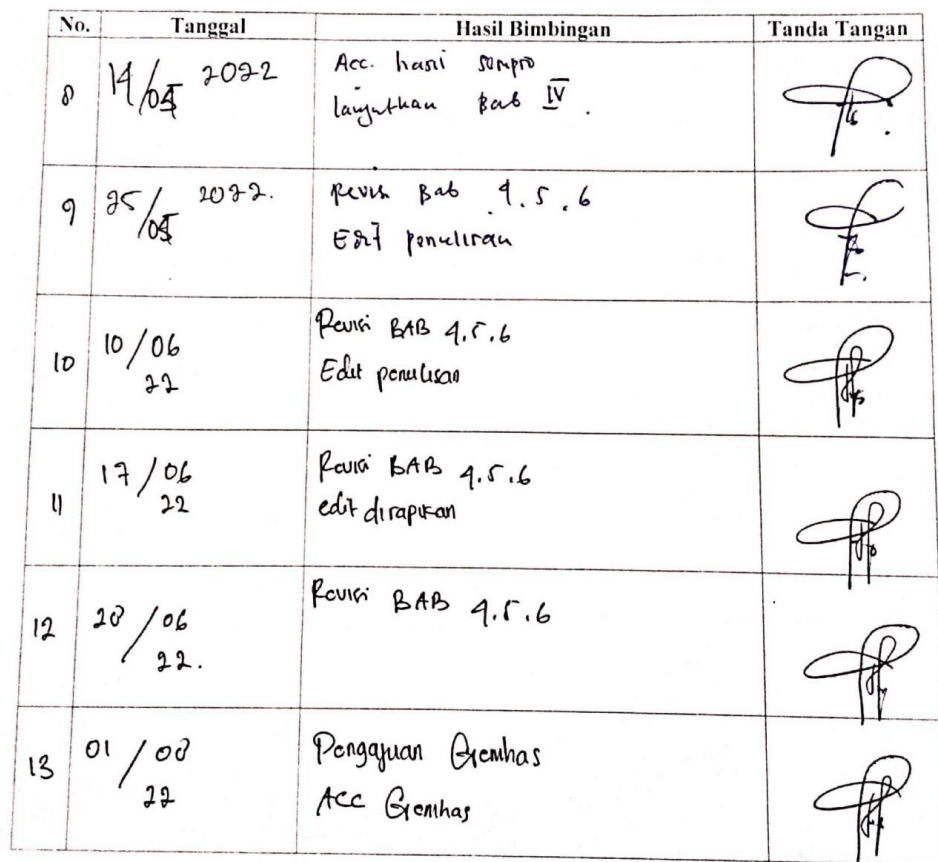 No. Tanggal Hasil Bimbingan Tanda Tangan
8 14/05 2022 Acc. hasil sempro
lanjutkan Bab IV.
9 25/05 2022. Revisi Bab 4.5.6
Edit penulisan
10 10/06 22 Revisi BAB 4.5.6
Edit penulisan
11 17/06 22 Revisi BAB 4.5.6
edit dirapikan
12 28/06 22. Revisi BAB 4.5.6
13 01/08 22 Pengajuan Semhas
ACC Semhas